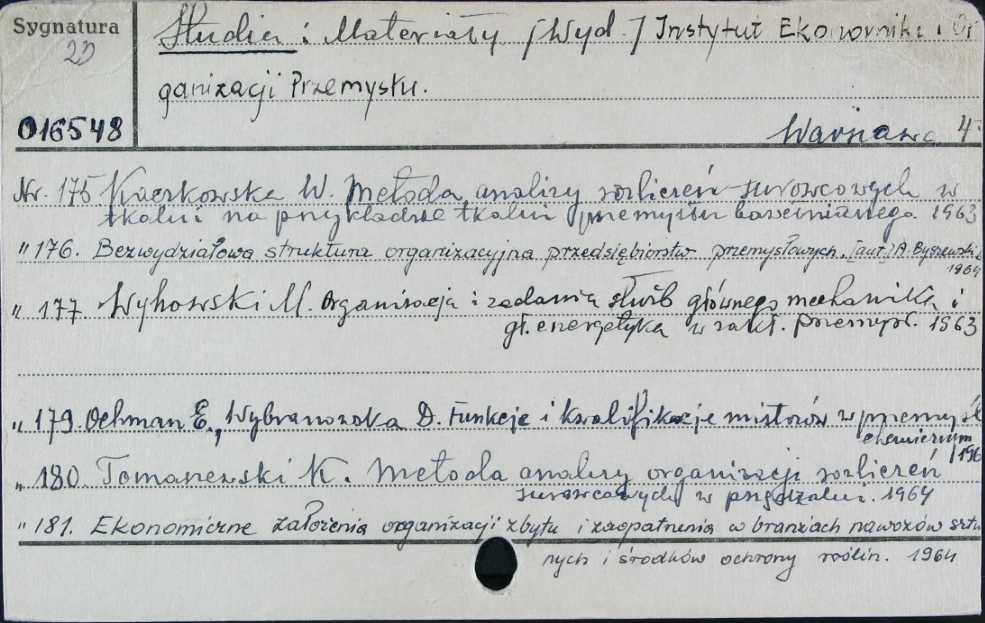 Sygnatura
20
Studia i Materiały [Wyd.] Instytut Ekonomiki i Or
ganizacji Przemysłu.
016548
Warszawa 4°
Nr. 175 Kaczkowska W. Metoda analizy rozliczeń surowcowych w
tkalni na przykładzie tkalni przemysłu bawełnianego. 1963
" 176. Bezwydziałowa struktura organizacyjna przedsiębiorstw przemysłowych. [aut.] A. Byszewski
1964
" 177 Wykowski M. Organizacja i zadania służb głównego mechanika i
gł. energetyka w zakł. przemysł. 1963
" 179. Oehman E., Wybranowska D. Funkcje i kwalifikacje mistrzów w przemyśl
chemicznym
196
" 180. Tomaszewski K. Metoda analizy organizacji rozliczeń
surowcowych w przędzalni. 1964
" 181. Ekonomiczne założenia organizacji zbytu i zaopatrzenia w branżach nawozów sztu
nych i środków ochrony roślin. 1964